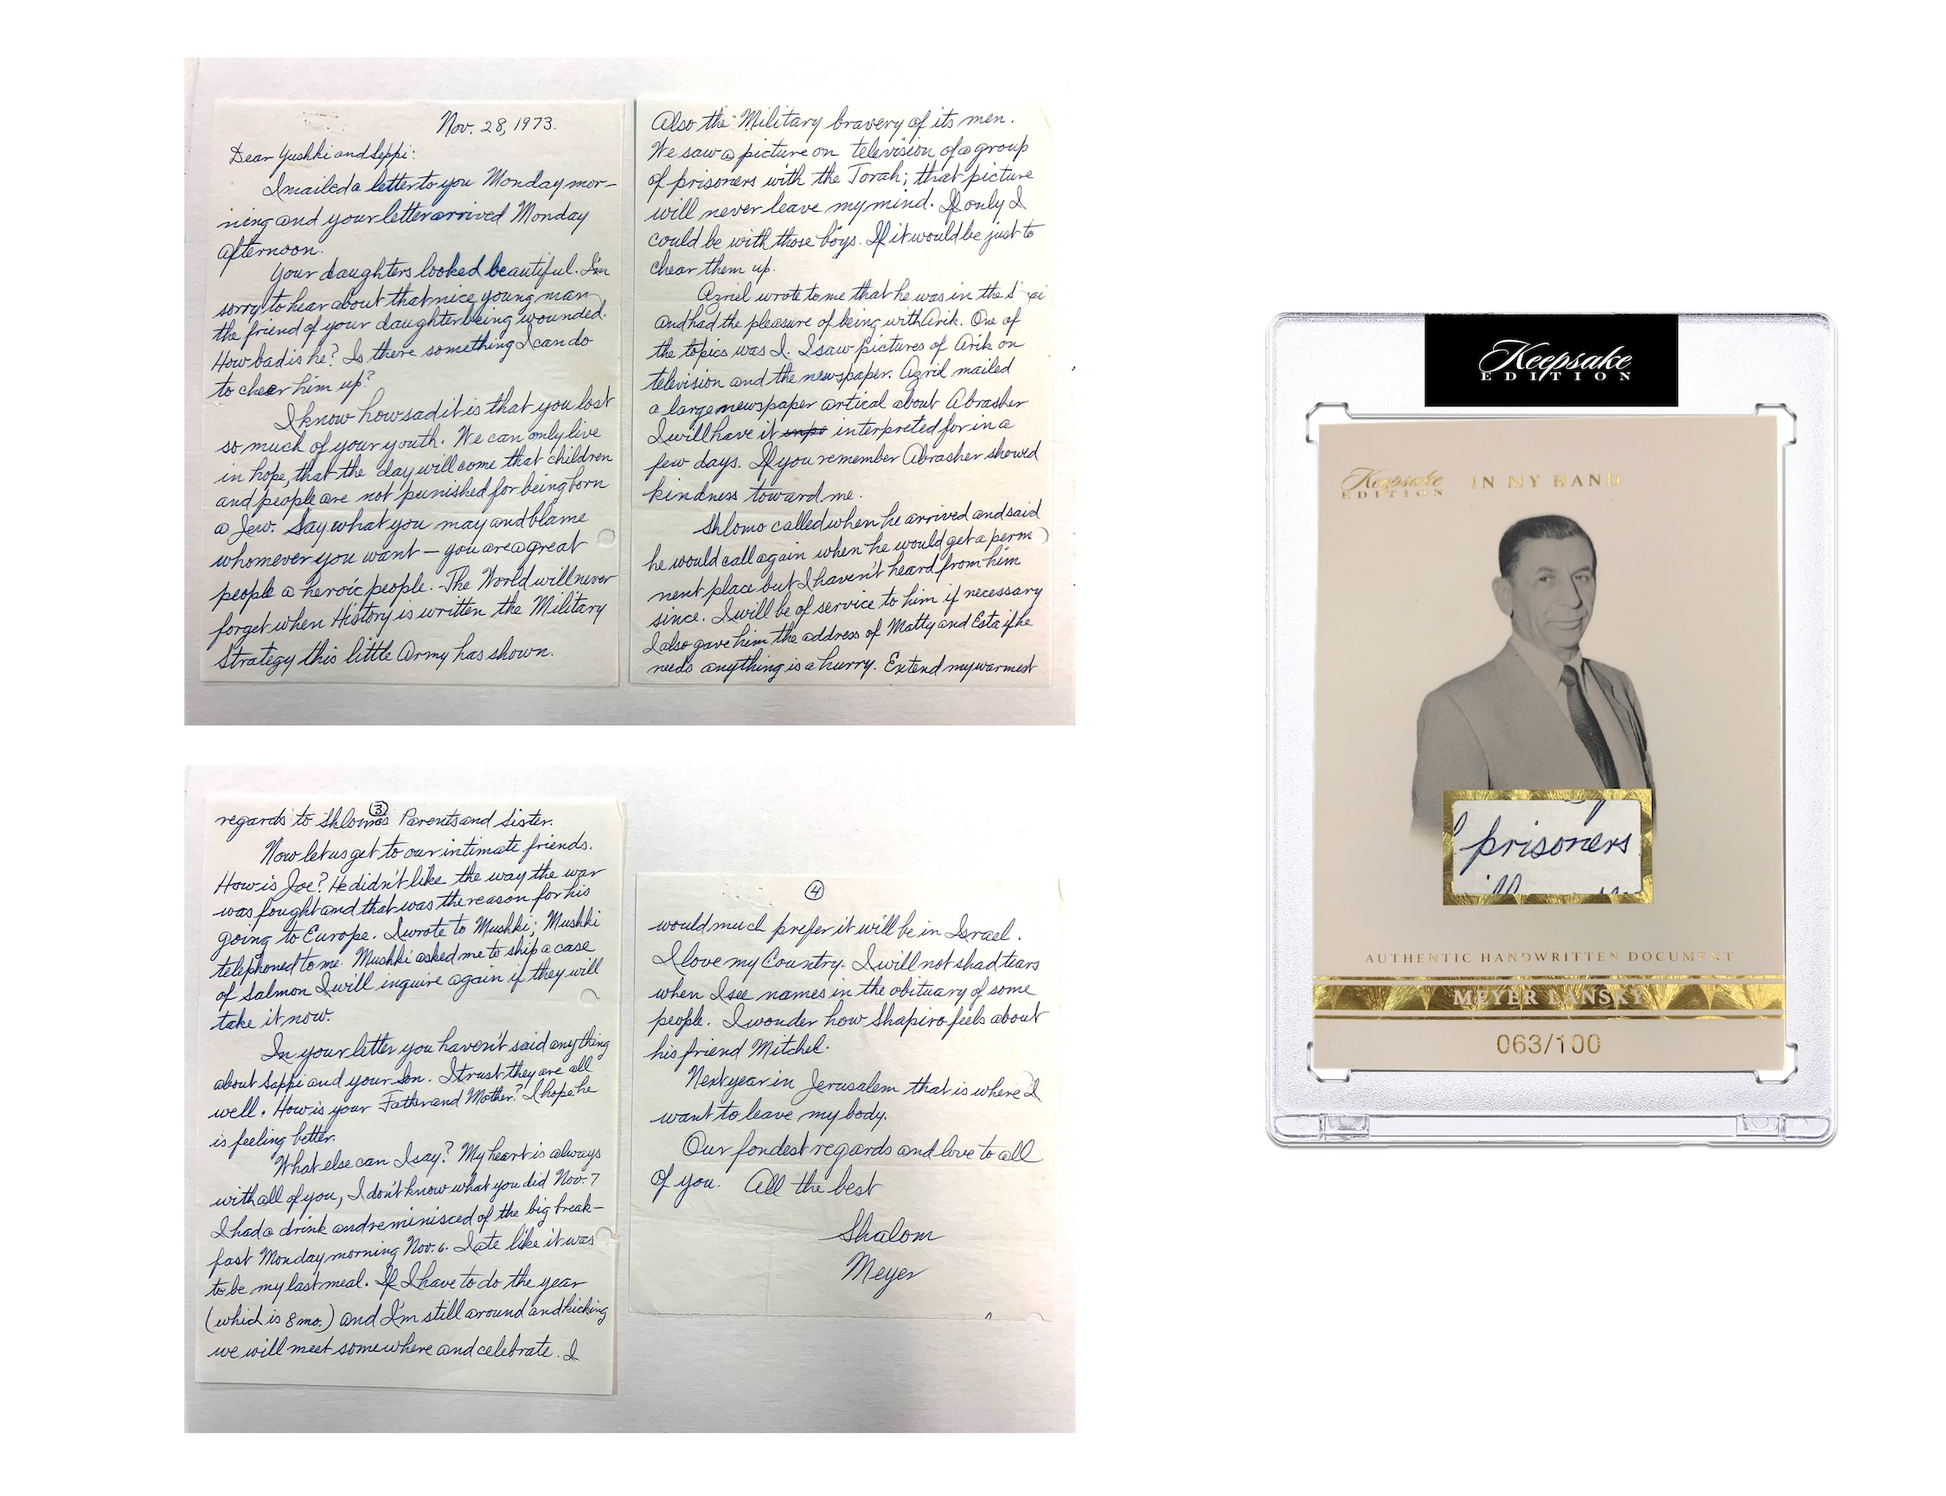 Nov. 28, 1973.
Dear Yushki and Seppi:
I mailed a letter to you Monday mor-
ning and your letter arrived Monday
afternoon.
Your daughters looked beautiful. I'm
sorry to hear about that nice young man
the friend of your daughter being wounded.
How bad is he? Is there something I can do
to chear him up?
I know how sad it is that you lost
so much of your youth. We can only live
in hope, that the day will come that children
and people are not punished for being born
a Jew. Say what you may and blame
whomever you want – you are a great
people a heroic people. The World will never
forget when History is written the Military
Strategy this little Army has shown.
Also the Military bravery of its men.
We saw a picture on television of a group
of prisoners with the Torah; that picture
will never leave my mind. If only I
could be with those boys. If it would be just to
chear them up.
Azriel wrote to me that he was in the
and had the pleasure of being with Arik. One of
the topics was I. I saw pictures of Arik on
television and the newspaper. Azriel mailed
a large newspaper artical about Abrasher
I will have it interpreted for in a
few days. If you remember Abrasher showed
kindness toward me.
Shlomo called when he arrived and said
he would call again when he would get a perm
nent place but I haven't heard from him
since. I will be of service to him if necessary
I also gave him the address of Matty and Esta if he
needs anything is a hurry. Extend my warmest
3
regards to Shlomos Parents and Sister.
Now let us get to our intimate friends.
How is Joe? He didn't like the way the war
was fought and that was the reason for his
going to Europe. I wrote to Mushki; Mushki
telephoned to me. Mushki asked me to ship a case
of Salmon I will inquire again if they will
take it now.
In your letter you haven't said anything
about Sappi and your Son. I trust they are all
well. How is your Father and Mother? I hope he
is feeling better.
What else can I say? My heart is always
with all of you, I don't know what you did Nov. 7
I had a drink and reminisced of the big break-
fast Monday morning Nov. 6. I ate like it was
to be my last meal. If I have to do the year
(which is 8 mo.) and I'm still around and kicking
we will meet somewhere and celebrate. I
4
would much prefer it will be in Israel.
I love my Country. I will not shad tears
when I see names in the obituary of some
people. I wonder how Shapiro feels about
his friend Mitchel.
Next year in Jerusalem that is where I
want to leave my body.
Our fondest regards and love to all
of you. All the best
Shalom
Meyer
Keepsake
EDITION
Keepsake
EDITION
IN MY HAND
prisoners
AUTHENTIC HANDWRITTEN DOCUMENT
MEYER LANSKY
063/100